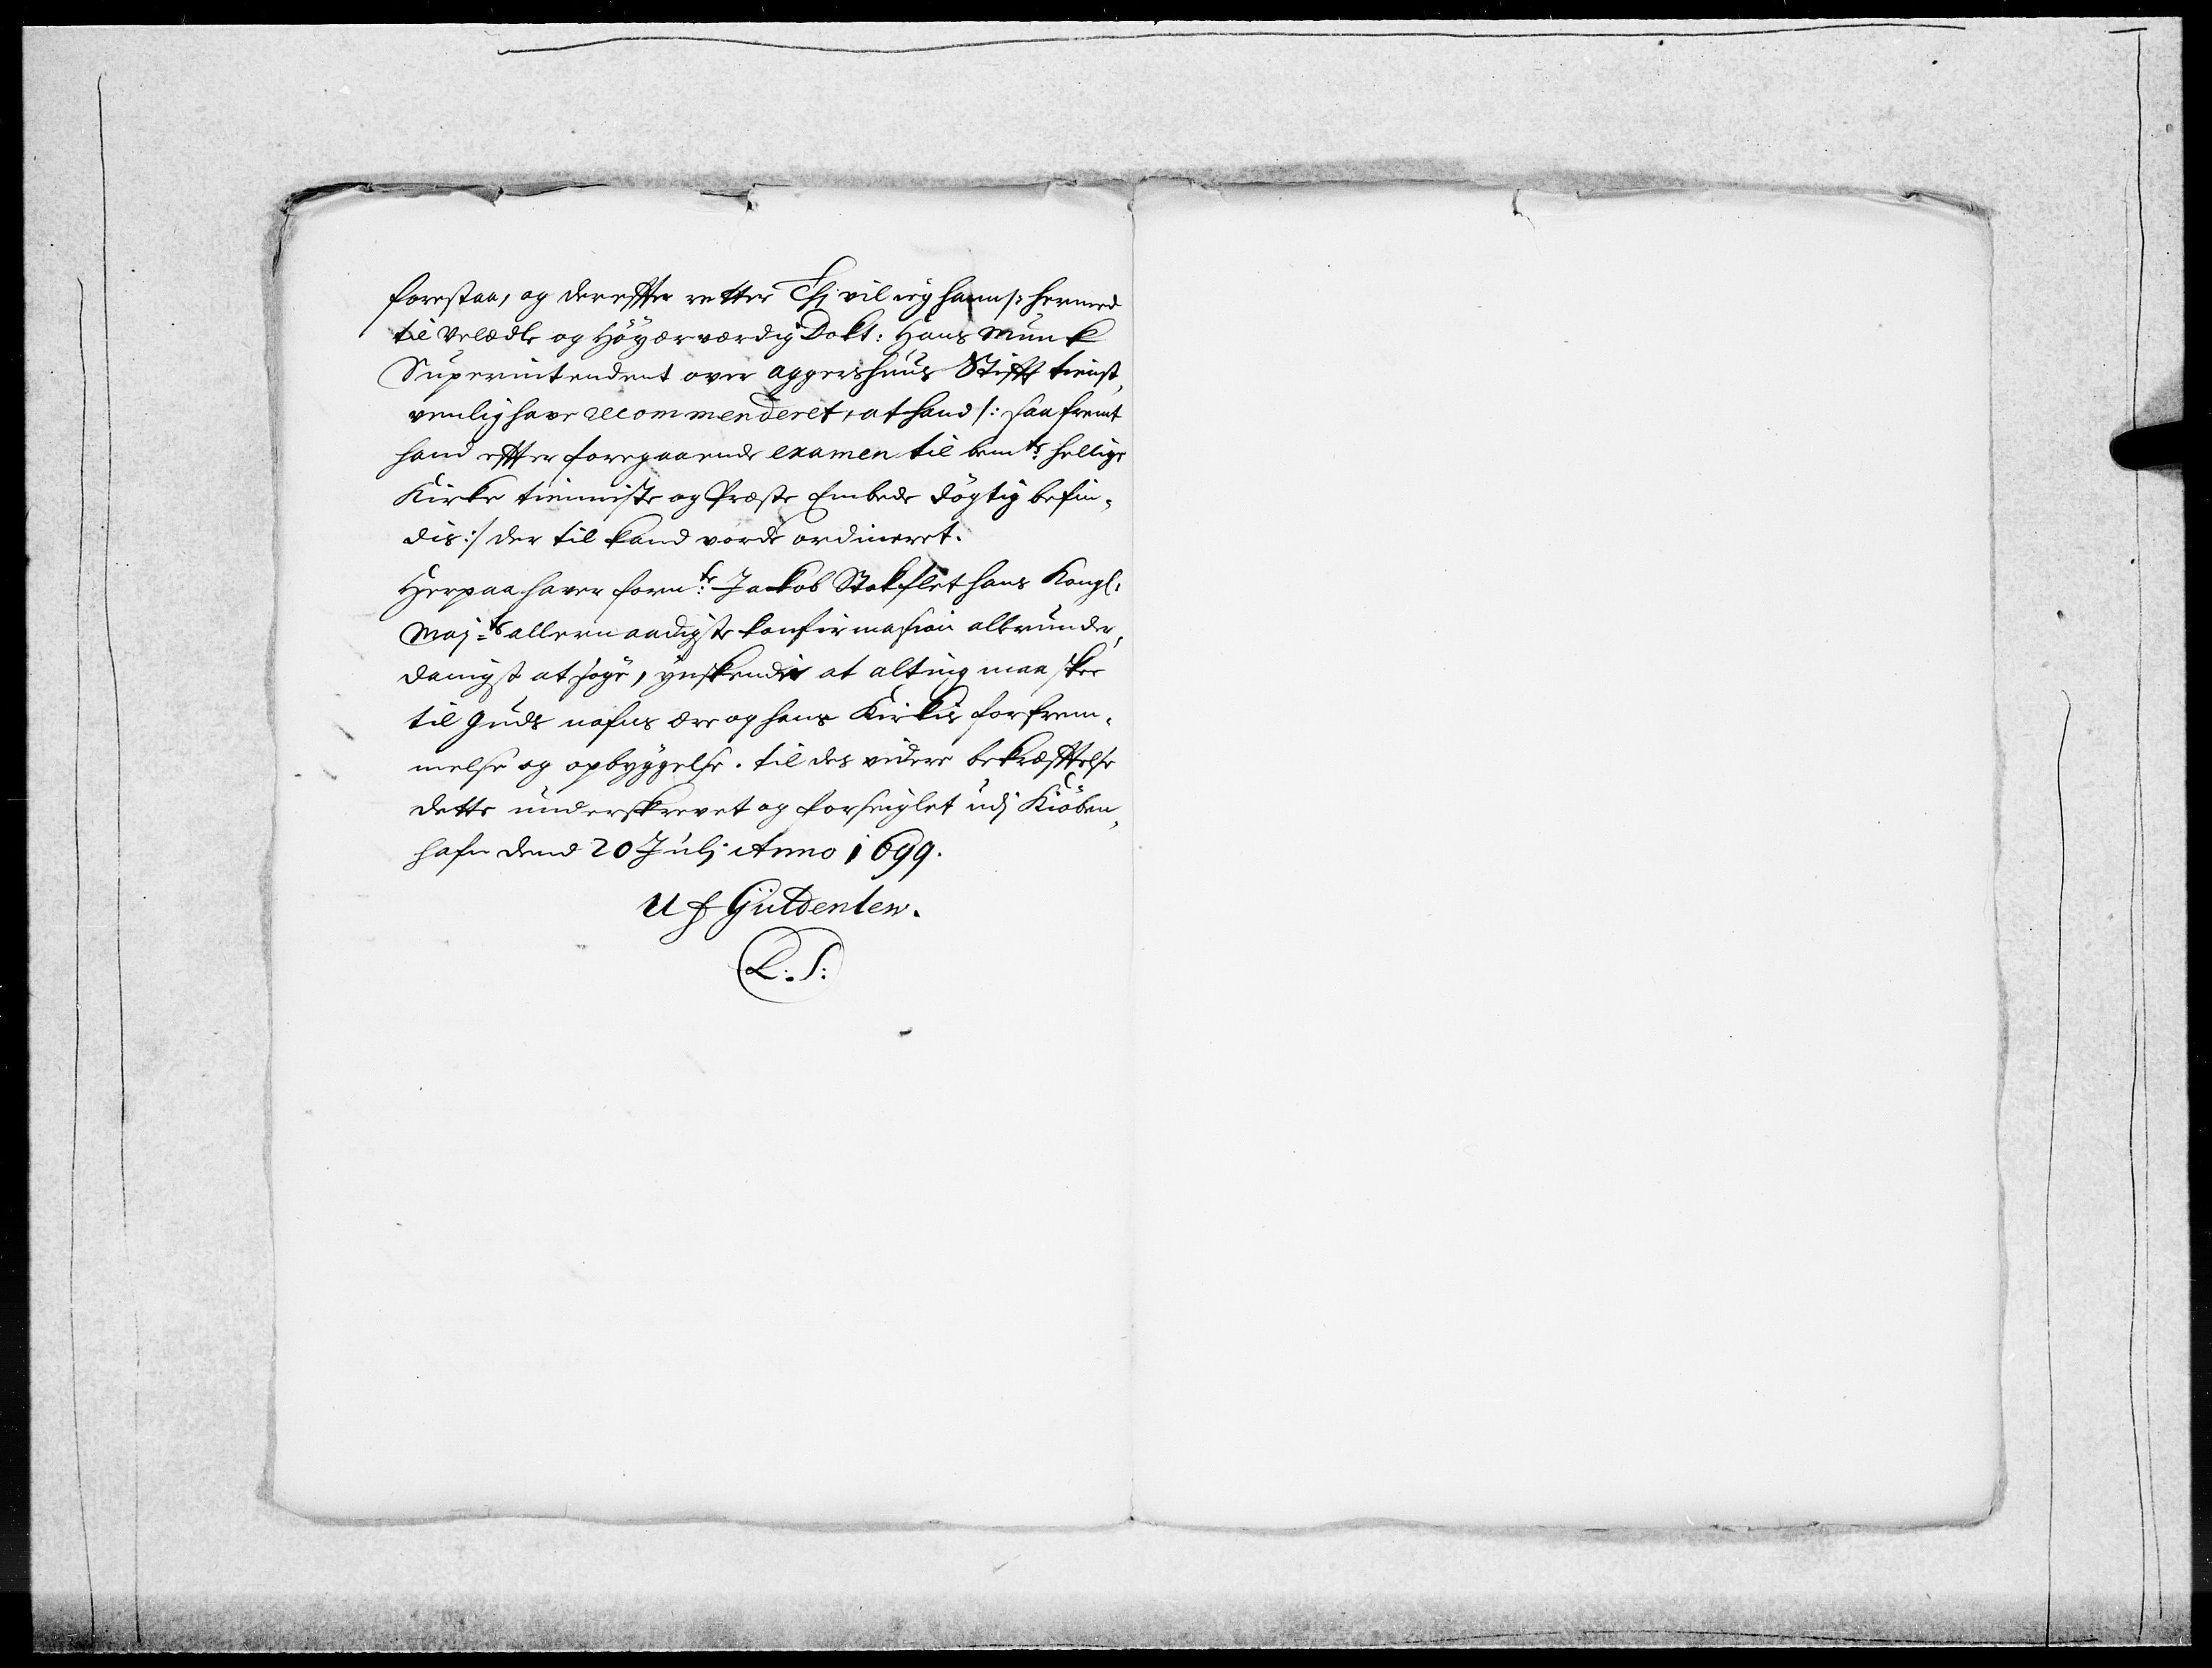 forestaa, og dereffter retter Thj vil ieg hannem hermed
til Velædle og Höyærværdig Dokt: Hans Munk
Superintendent over Aggershuus Stifft tienst,
venlig have recommenderet, at hand /: saa fremt
hand effter foregaaende examen til bem.te hellige
Kirke tienniste og Præste Embede dögtig befin-
dis :/ der til kand vorde ordineret.
Herpaa haver form.te Jakob Stokflet hans Kongl:
Maj.ts allernaadigste konfirmasion allerunder,
danigst at söge, ynskendis at alting maa skee
til Guds nafns ære og hans Kirkis forfrem-
melse og opbyggelse. til des videre bekræfftelse
dette underskrevet og forseiglet udj Kiöben,
hafn dend 20 Julj Anno 1699.
U f Güldenlew.
L. S: